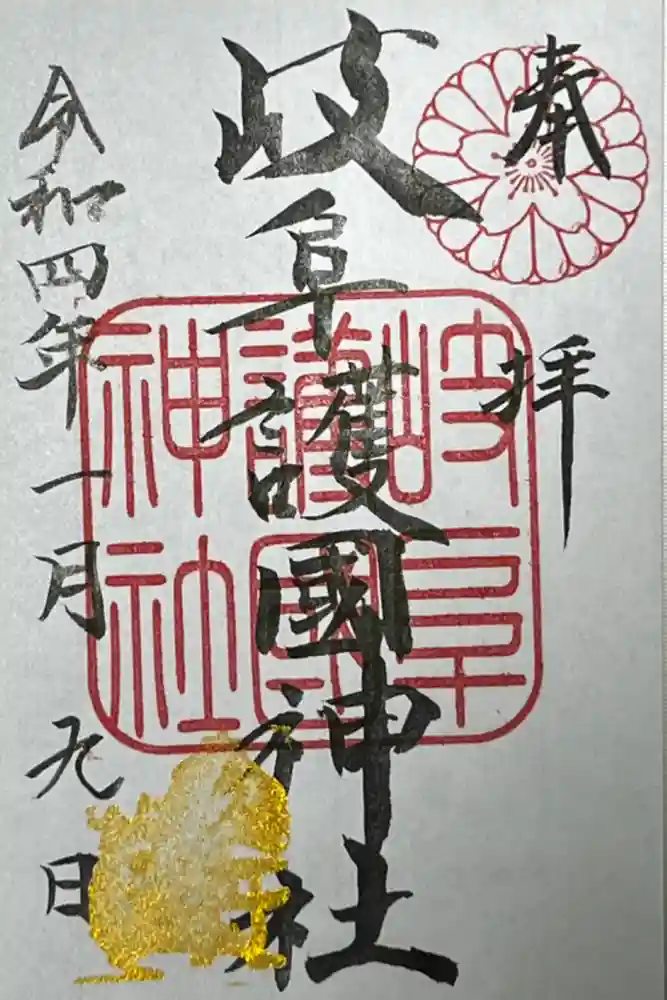 奉拝
岐阜護國神社
岐阜護國神社
令和四年一月九日